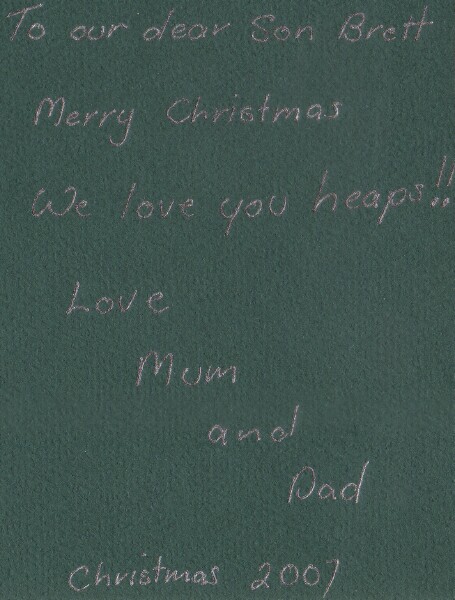 To our dear Son Brett
Merry Christmas
We love you heaps!!
Love
Mum
and
Dad
Christmas 2007